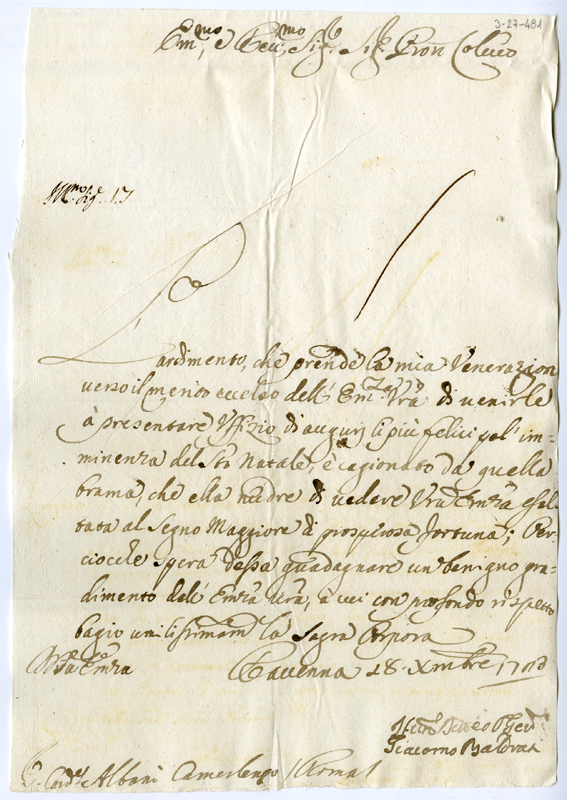 3-27-481
Em.mo, e Rev.mo Sig.r Sig.r Pron Col.mo
L'ardimento, che prende la mia Venerazion
verso il merito eccelso dell' Em.za V.ra di venirle
à presentare Uffizio di augurj li più felici pel' im=
minenza del S.to Natale, è cagionato da quella
brama, che ella nudre di vedere V.ra Em.za esal=
tata al Segno Maggiore di prosperosa fortuna; Per=
ciocche spera dessa guadagnare un benigno gra=
dimento dell' Em.za V.ra, a cui con profondo rispetto
bagio umilissimam.te la Sagra Porpora
V.ra Em.za Ravenna 18 Xmbre
Giacomo
Card.l Albani Camerlengo / Roma /